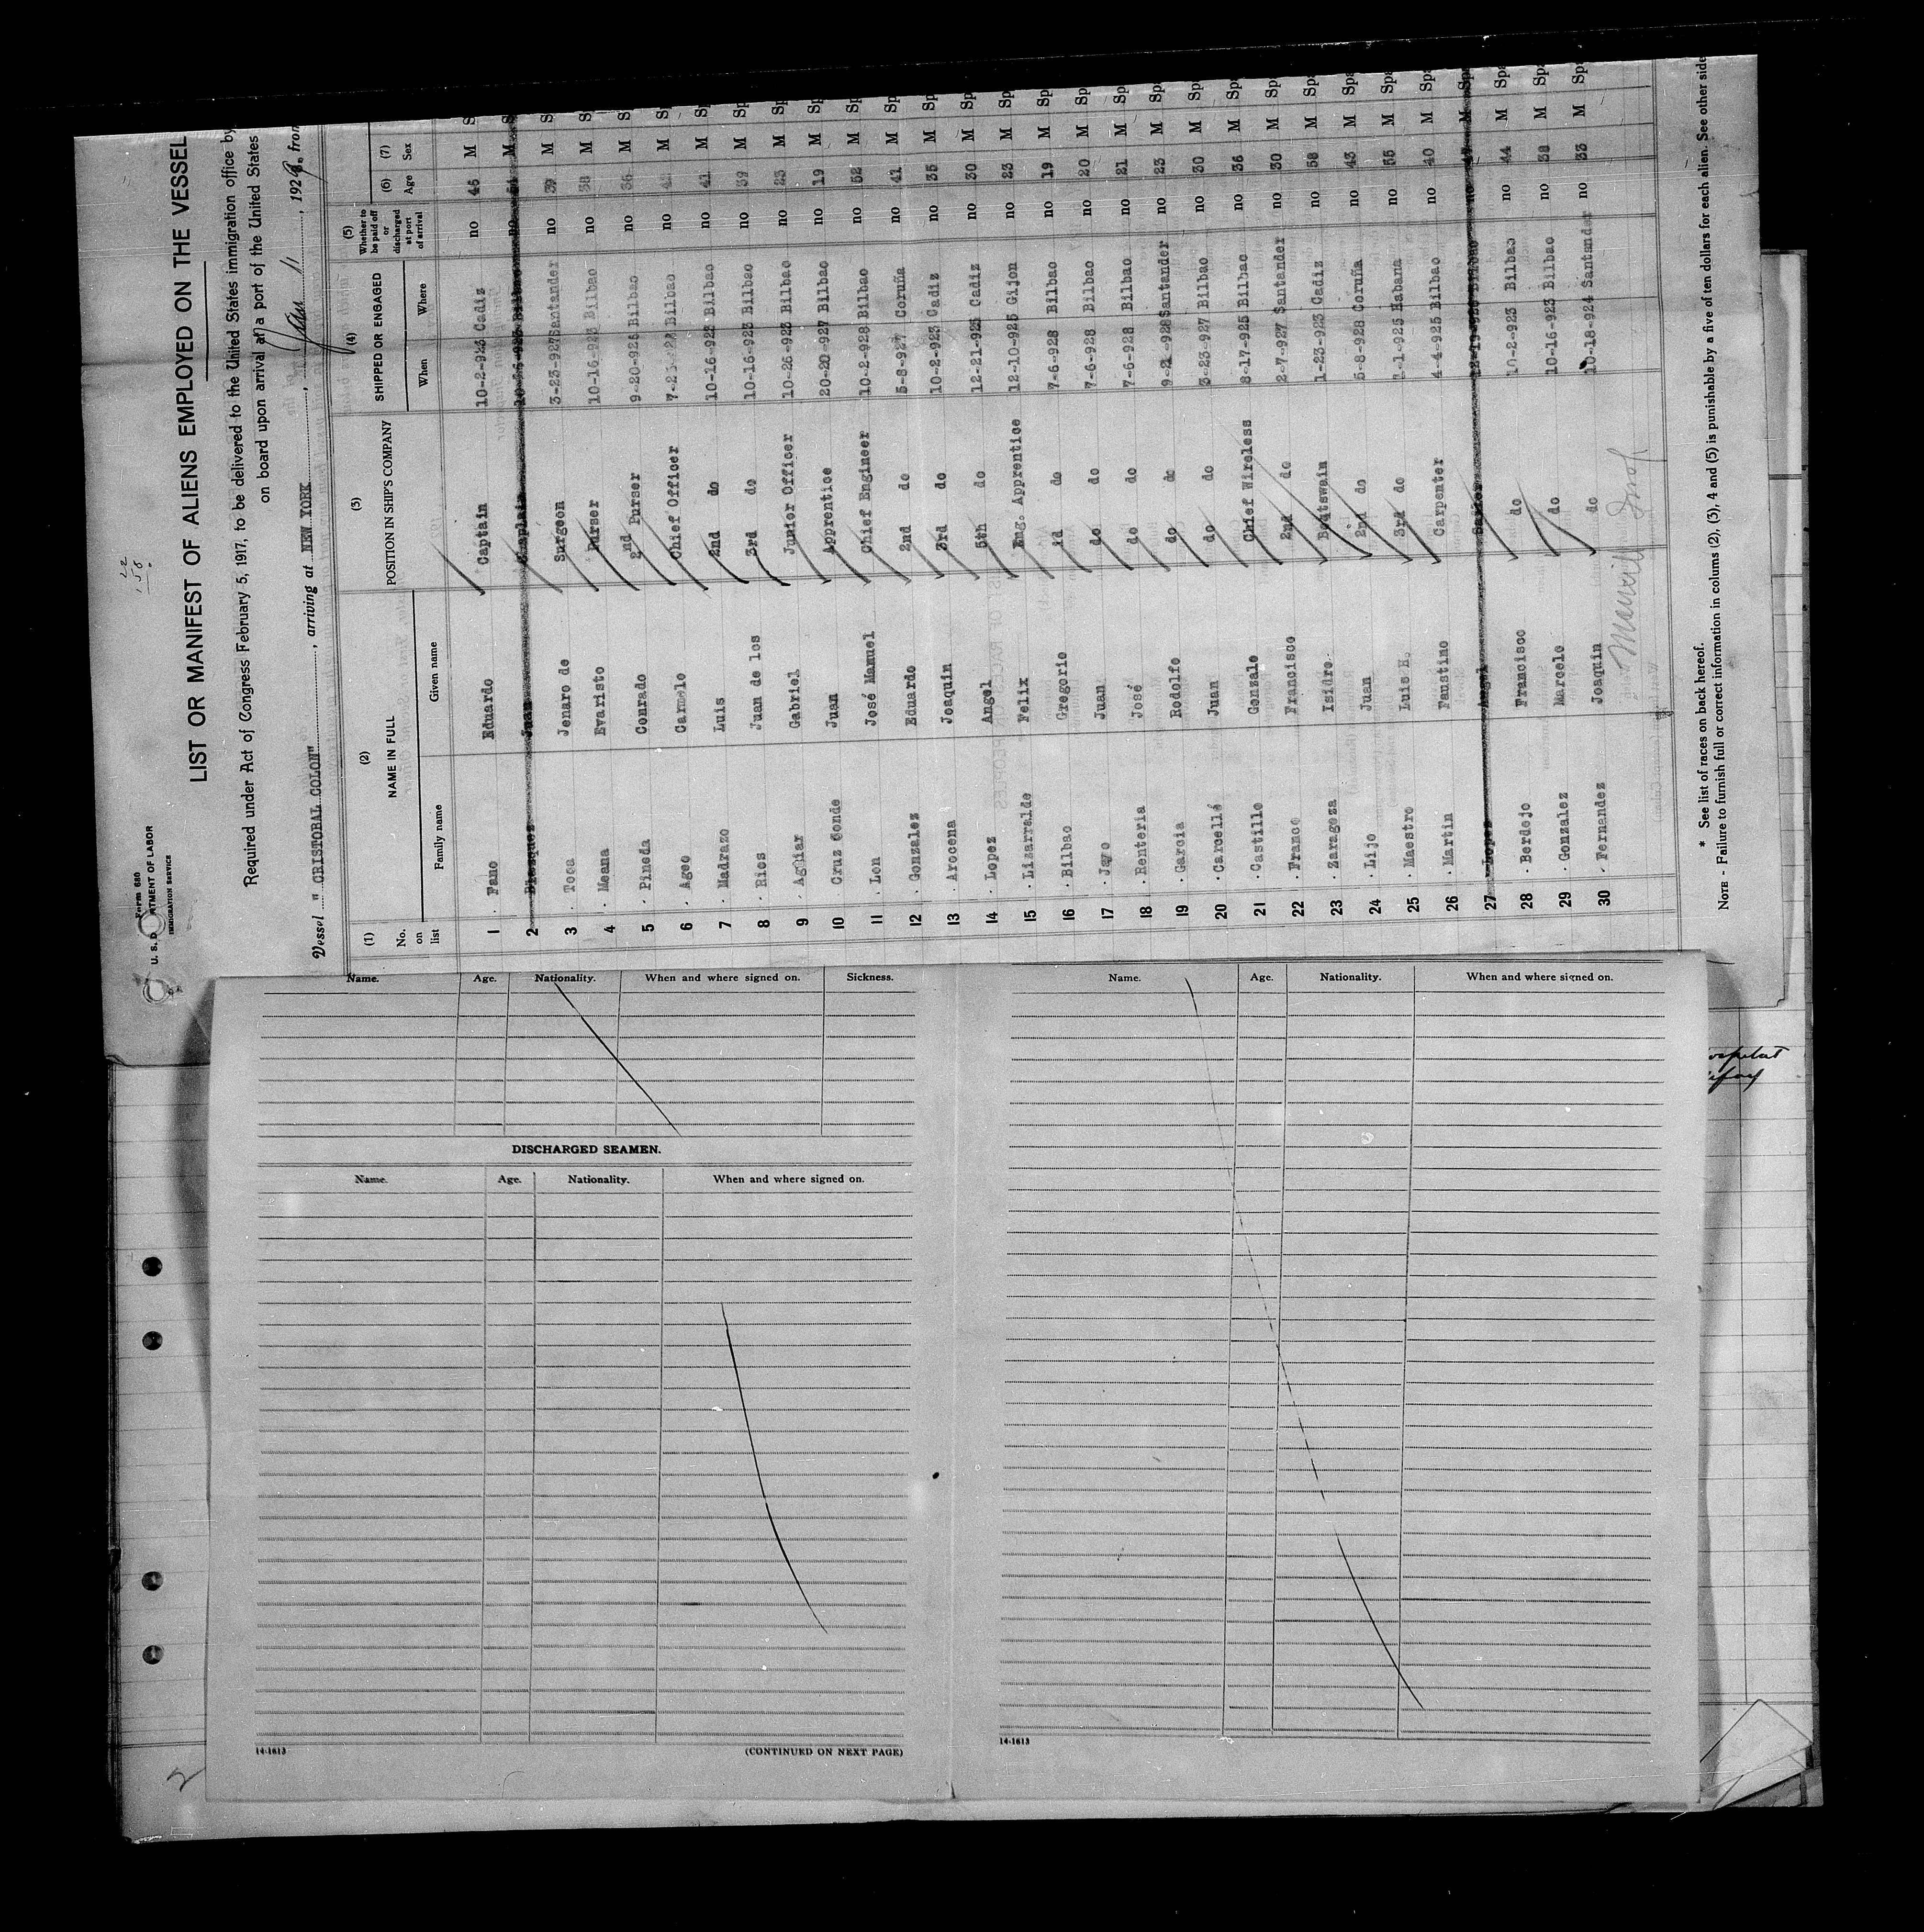 Form 680
U. S. DEPARTMENT OF LABOR
IMMIGRATION SERVICE
LIST OR MANIFEST OF ALIENS EMPLOYED ON THE VESSEL
Required under Act of Congress February 5, 1917, to be delivered to the United States immigration office by
on board upon arrival at a port of the United States
Vessel " CRISTOBAL COLON" , arriving at NEW YORK , Jan 11 , 1929, from
(1) (2) (3) (4) (5) (6) (7)
No. on list NAME IN FULL POSITION IN SHIP'S COMPANY SHIPPED OR ENGAGED Whether to be paid off or discharged at port of arrival Age Sex
Family name Given name When Where
1 Fano Eduardo Captain 10-2-923 Cadiz no 45 M
2 Blazquez Juan Chaplain 10-16-923 Bilbao no 54 M
3 Toca Jenaro de Surgeon 3-23-927 Santander no 39 M
4 Meana Evaristo Purser 10-16-923 Bilbao no 38 M
5 Pineda Conrado 2nd Purser 9-20-925 Bilbao no 36 M
6 Ageo Carmelo Chief Officer Bilbao no M
7 Madrazo Luis 2nd do 10-16-923 Bilbao no 41 M
8 Rios Juan de los 3rd do 10-16-923 Bilbao no 39 M
9 Aguiar Gabriel Junior Officer 10-26-923 Bilbao no 23 M
10 Cruz Conde Juan Apprentice 20-20-927 Bilbao no 19 M
11 Lon José Manuel Chief Engineer 10-2-928 Bilbao no 52 M Sp
12 Gonzalez Eduardo 2nd do 5-8-927 Coruña no 41 M Sp
13 Arocena Joaquin 3rd do 10-2-923 Cadiz no 35 M Sp
14 Lopez Angel 5th do 12-21-925 Cadiz no 30 M Sp
15 Lizarralde Felix Eng. Apprentice 12-10-925 Gijon no 23 M Sp
16 Bilbao Gregorio id do 7-6-928 Bilbao no 19 M Spa
17 Jayo Juan do do 7-6-928 Bilbao no 20 M Spa
18 Renteria José do do 7-6-928 Bilbao no 21 M Spa
19 Garcia Rodolfo do do 9-21-928 Santander no 23 M Spa
20 Carcellé Juan do do 3-23-927 Bilbao no 30 M Spa
21 Castillo Gonzalo Chief Wireless 8-17-925 Bilbao no 36 M Spa
22 Franco Francisco 2nd do 2-7-927 Santander no 30 M Spa
23 Zaragoza Isidro Boatswain 1-23-923 Cadiz no 58 M Spa
24 Lijo Juan 2nd do 5-8-928 Coruña no 43 M Spa
25 Maestro Luis H. 3rd do 1-1-925 Habana no 55 M Spa
26 Martin Faustino Carpenter 4-4-925 Bilbao no 40 M Spa
27 Lopez Angel Sailor Bilbao no M Spa
28 Berdejo Francisco do 10-2-923 Bilbao no 44 M Spa
29 Gonzalez Marcelo do 10-16-923 Bilbao no 38 M Spa
30 Fernandez Joaquin do 10-18-924 Santander no 33 M Spa
* See list of races on back hereof.
NOTE - Failure to furnish full or correct information in colums (2), (3), 4 and (5) is punishable by a five of ten dollars for each alien. See other side
Name. Age. Nationality. When and where signed on. Sickness.
DISCHARGED SEAMEN.
Name. Age. Nationality. When and where signed on.
14-1613 (CONTINUED ON NEXT PAGE)
Name. Age. Nationality. When and where signed on.
14-1613
2